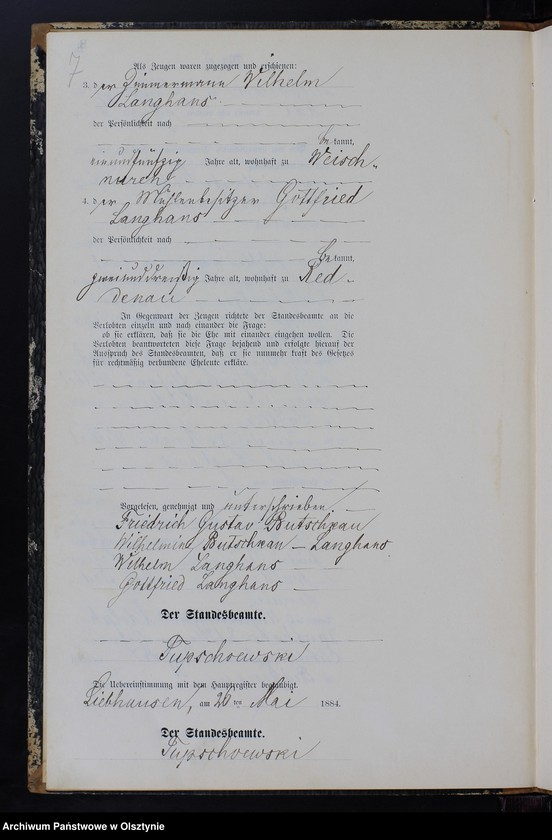 7
Als Zeugen waren zugezogen und erschienen:
3. der Zimmermann Wilhelm
Langhans
der Persönlichkeit nach
bekannt,
einundfünfzig Jahre alt, wohnhaft zu Weisch-
nuren
4. der Mühlenbesitzer Gottfried
Langhans
der Persönlichkeit nach
bekannt,
zweiunddreißig Jahre alt, wohnhaft zu Red-
denau
In Gegenwart der Zeugen richtete der Standesbeamte an die
Verlobten einzeln und nach einander die Frage:
ob sie erklären, daß sie die Ehe mit einander eingehen wollen. Die
Verlobten beantworteten diese Frage bejahend und erfolgte hierauf der
Ausspruch des Standesbeamten, daß er sie nunmehr kraft des Gesetzes
für rechtmäßig verbundene Eheleute erkläre.
Vorgelesen, genehmigt und unterschrieben
Friedrich Gustav Butschkau
Wilhelmine Butschkau - Langhans.
Wilhelm Langhans
Gottfried Langhans
Der Standesbeamte.
Tupschoewski
Die Uebereinstimmung mit dem Hauptregister beglaubigt.
Liebhausen, am 26 ten Mai 1884.
Der Standesbeamte.
Tupschoewski
Archiwum Państwowe w Olsztynie